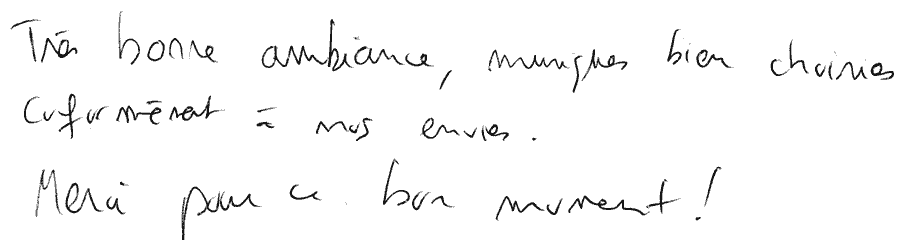 Très bonne ambiance, musiques bien choisies
Conformément à nos envies.
Merci pour ce bon moment !